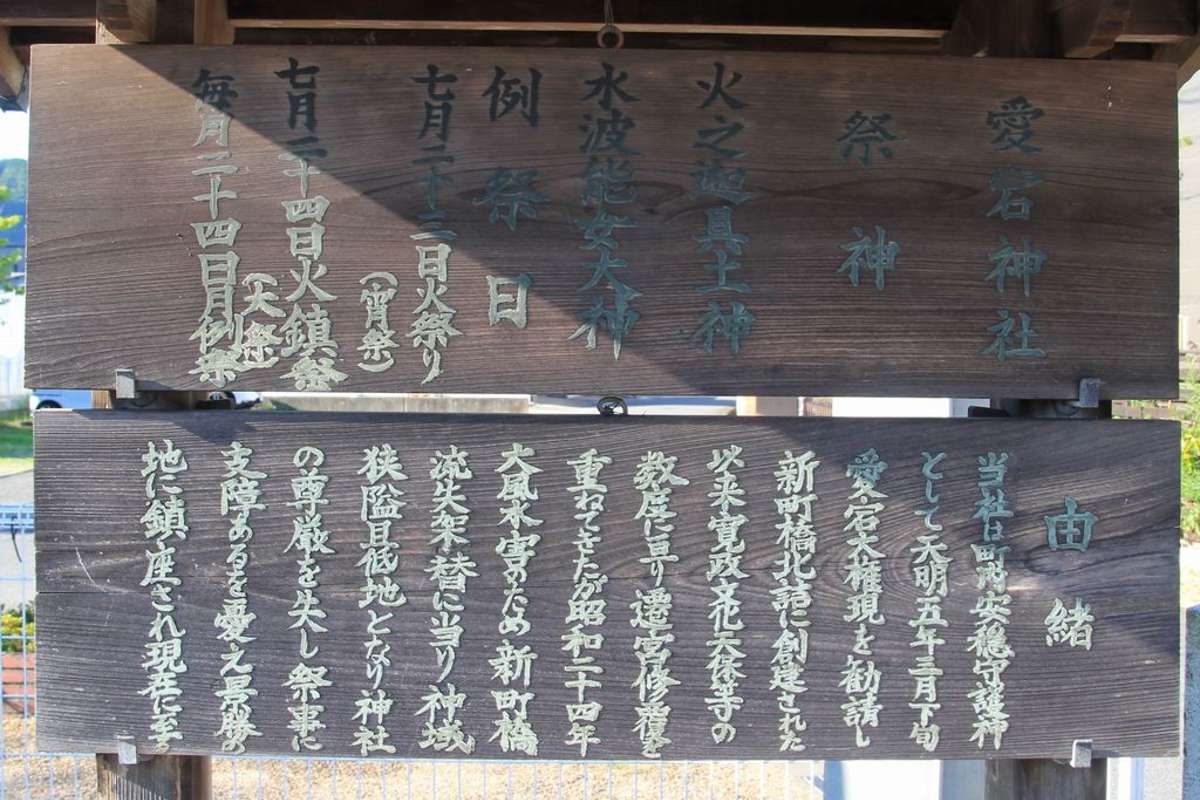 愛宕神社
祭神
火之迦具土神
水波能女大神
例祭日
七月二十三日火祭り
(宵祭)
七月二十四日火鎮祭
(大祭)
毎月二十四日月例祭
由緒
当社は町内安穏守護神
として天明五年三月下旬
愛宕大権現を勧請し
新町橋北詰に創建された
以来寛政文化天保等の
数度に亘り遷宮修復を
重ねてきたが昭和二十四年
大風水害のため新町橋
流失架替に当り神域
狭隘且低地となり神社
の尊厳を失し祭事に
支障あるを憂え景勝の
地に鎮座され現在に至る